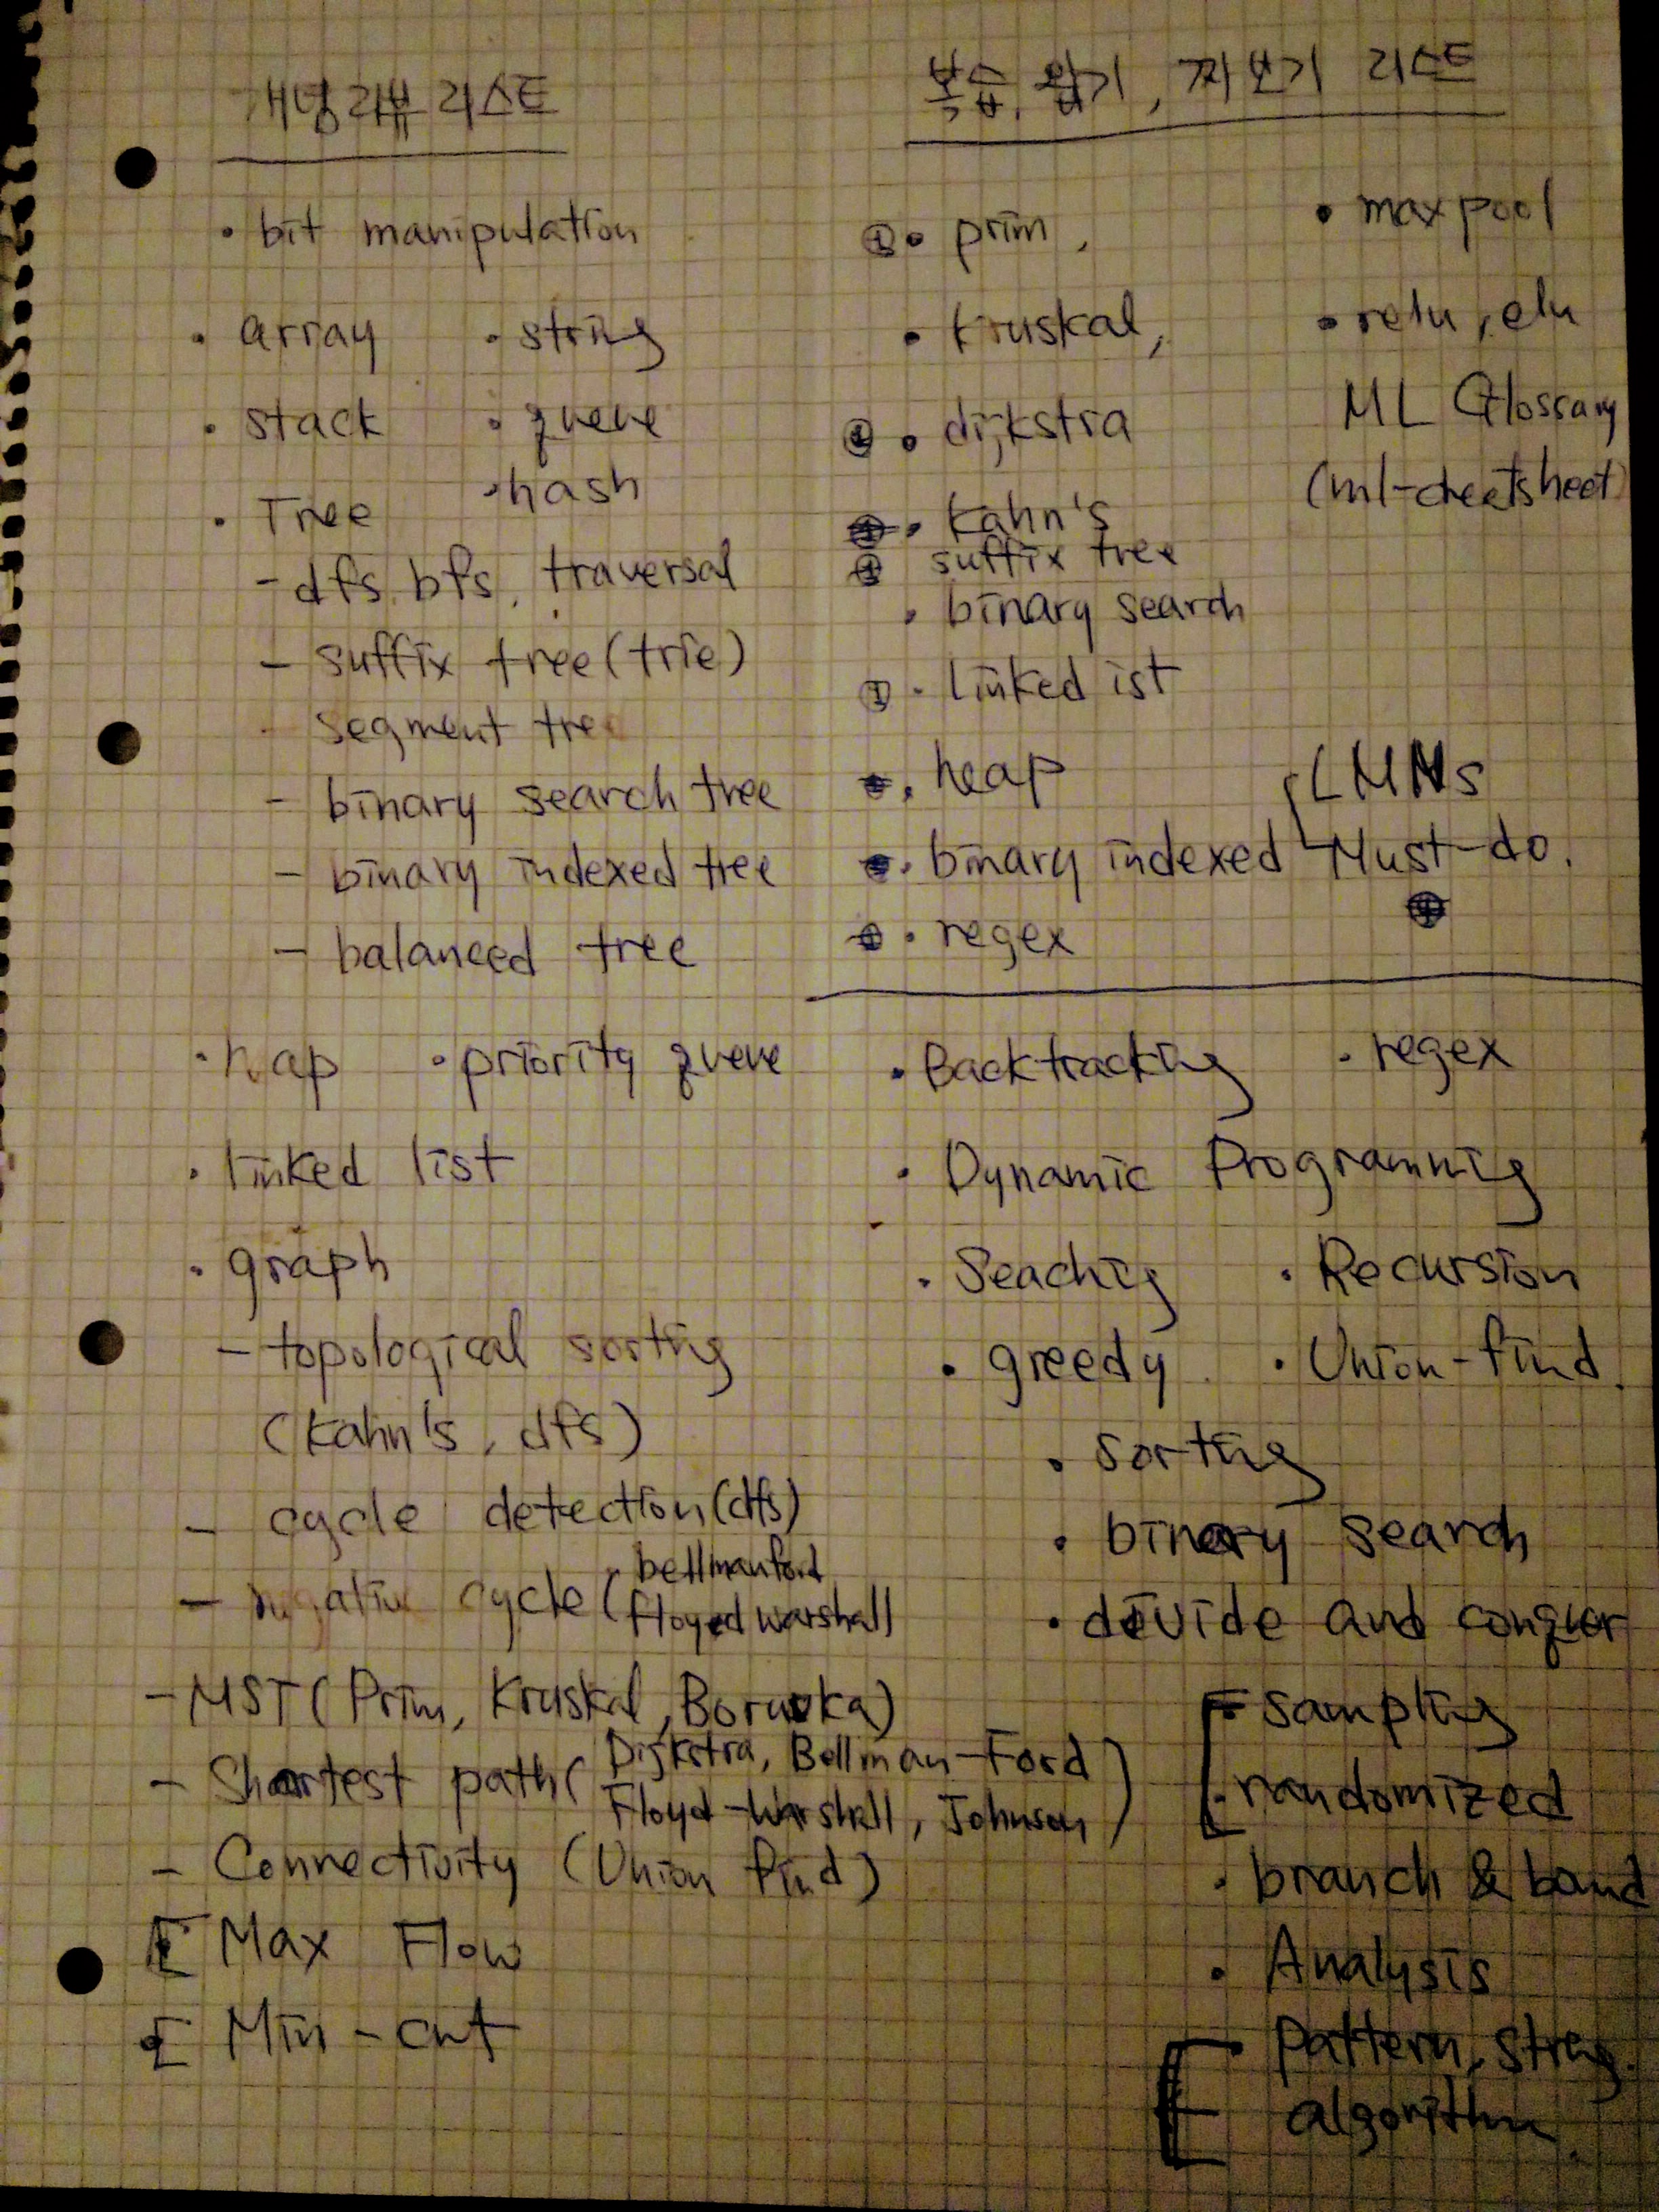 개념리뷰 리스트
• bit manipulation
• array • string
• stack • queue
• hash
• Tree
- dfs, bfs, traversal
- suffix tree (trie)
- segment tree
- binary search tree
- binary indexed tree
- balanced tree
• heap • priority queue
• linked list
• graph
- topological sorting
(Kahn's, dfs)
- cycle detection (dfs)
- negative cycle ( bellmanford
floyed warshall
- MST ( Prim, Kruskal, Boruvka)
- Shortest path ( Dijkstra, Bellman-Ford
Floyd-Warshall, Johnson )
- Connectivity (Union find)
Max Flow
Min-cut
복습, 짜보기 리스트
① • prim,
• Kruskal,
① • dijkstra
• Kahn's
suffix tree
• binary search
① • Linked ist
• heap
• binary indexed
• regex
• maxpool
• relu, elu
ML Glossary
(ml-cheetsheet)
Must-do.
• Backtracking • regex
• Dynamic Programming
• Seaching • Recursion
• greedy • Union-find.
• sorting
• binary search
• divide and conquer
sampling
randomized
• branch & bound
• Analysis
Pattern, String
algorithm.